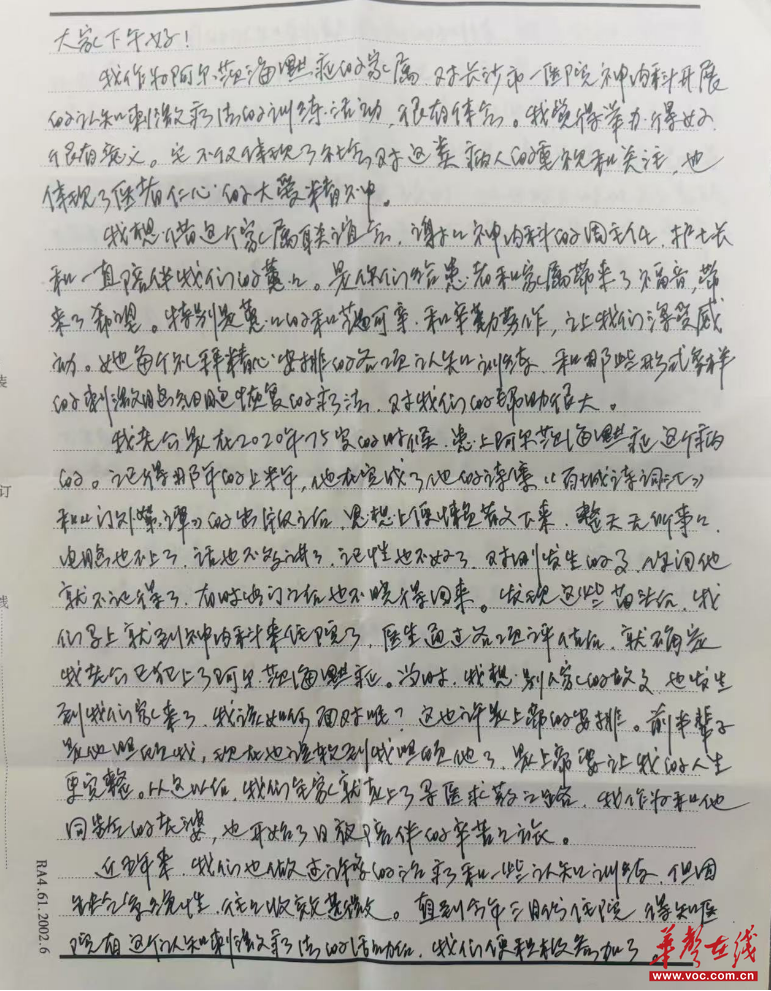 大家下午好！
我作为阿尔茨海默症的家属，对长沙市一医院神内科开展
的认知刺激疗法的训练活动，很有体会。我觉得举办得好
很有意义。它不仅体现了社会对这类病人的重视和关注，也
体现了医者仁心的大爱精神。
我想借这个家属联谊会，谢谢神内科的周主任，护士长
和一直陪伴我们的龚工。是你们给患者和家属带来了福音，带
来了希望。特别是龚工的和蔼可亲和辛勤劳作，让我们深受感
动。她每个礼拜精心安排的各项认知训练，和那些形式多样
的刺激脑细胞恢复的疗法，对我们的帮助很大。
我老公是在2020年75岁的时候，患上阿尔茨海默症这个病
的。记得那年的上半年，他在完成了他的诗集《百城诗词汇》
和《 》的出版之后，思想上便懒散下来，整天无所事事，
电脑也不上了，话也不多讲了，记性也不好了，对刚发生的事，你问他
就不记得了，有时出门之后也不晓得回来。发现这些苗头后，我
们马上就到神内科来住院了，医生通过各项评估后，就确定
我老公已患上了阿尔茨海默症。当时，我想别人家的故事，也发生
到我们家来了，我该如何面对呢？这也许是上帝的安排。前半辈子
是他照顾我，现在也该轮到我照顾他了，是上帝要让我的人生
更完整。从这以后，我们全家就走上了寻医求药之路，我作为和他
同龄的老婆，也开始了日夜陪伴的辛苦之旅。
近五年来，我们也做过许多的治疗和一些认知训练，但因
缺乏系统性，往往收效甚微。直到今年三月份住院，得知医
院有这个认知刺激疗法的活动后，我们便积极参加了。
装
订
线
RA4.61.2002.6
华声在线
www.voc.com.cn